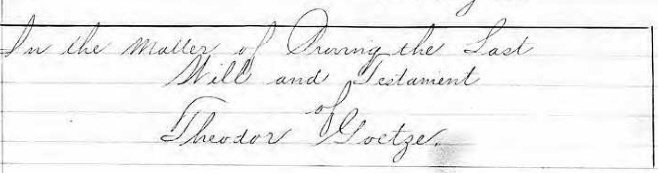 In the Matter of Proving the Last
Will and Testament
of
Theodor Goetze.